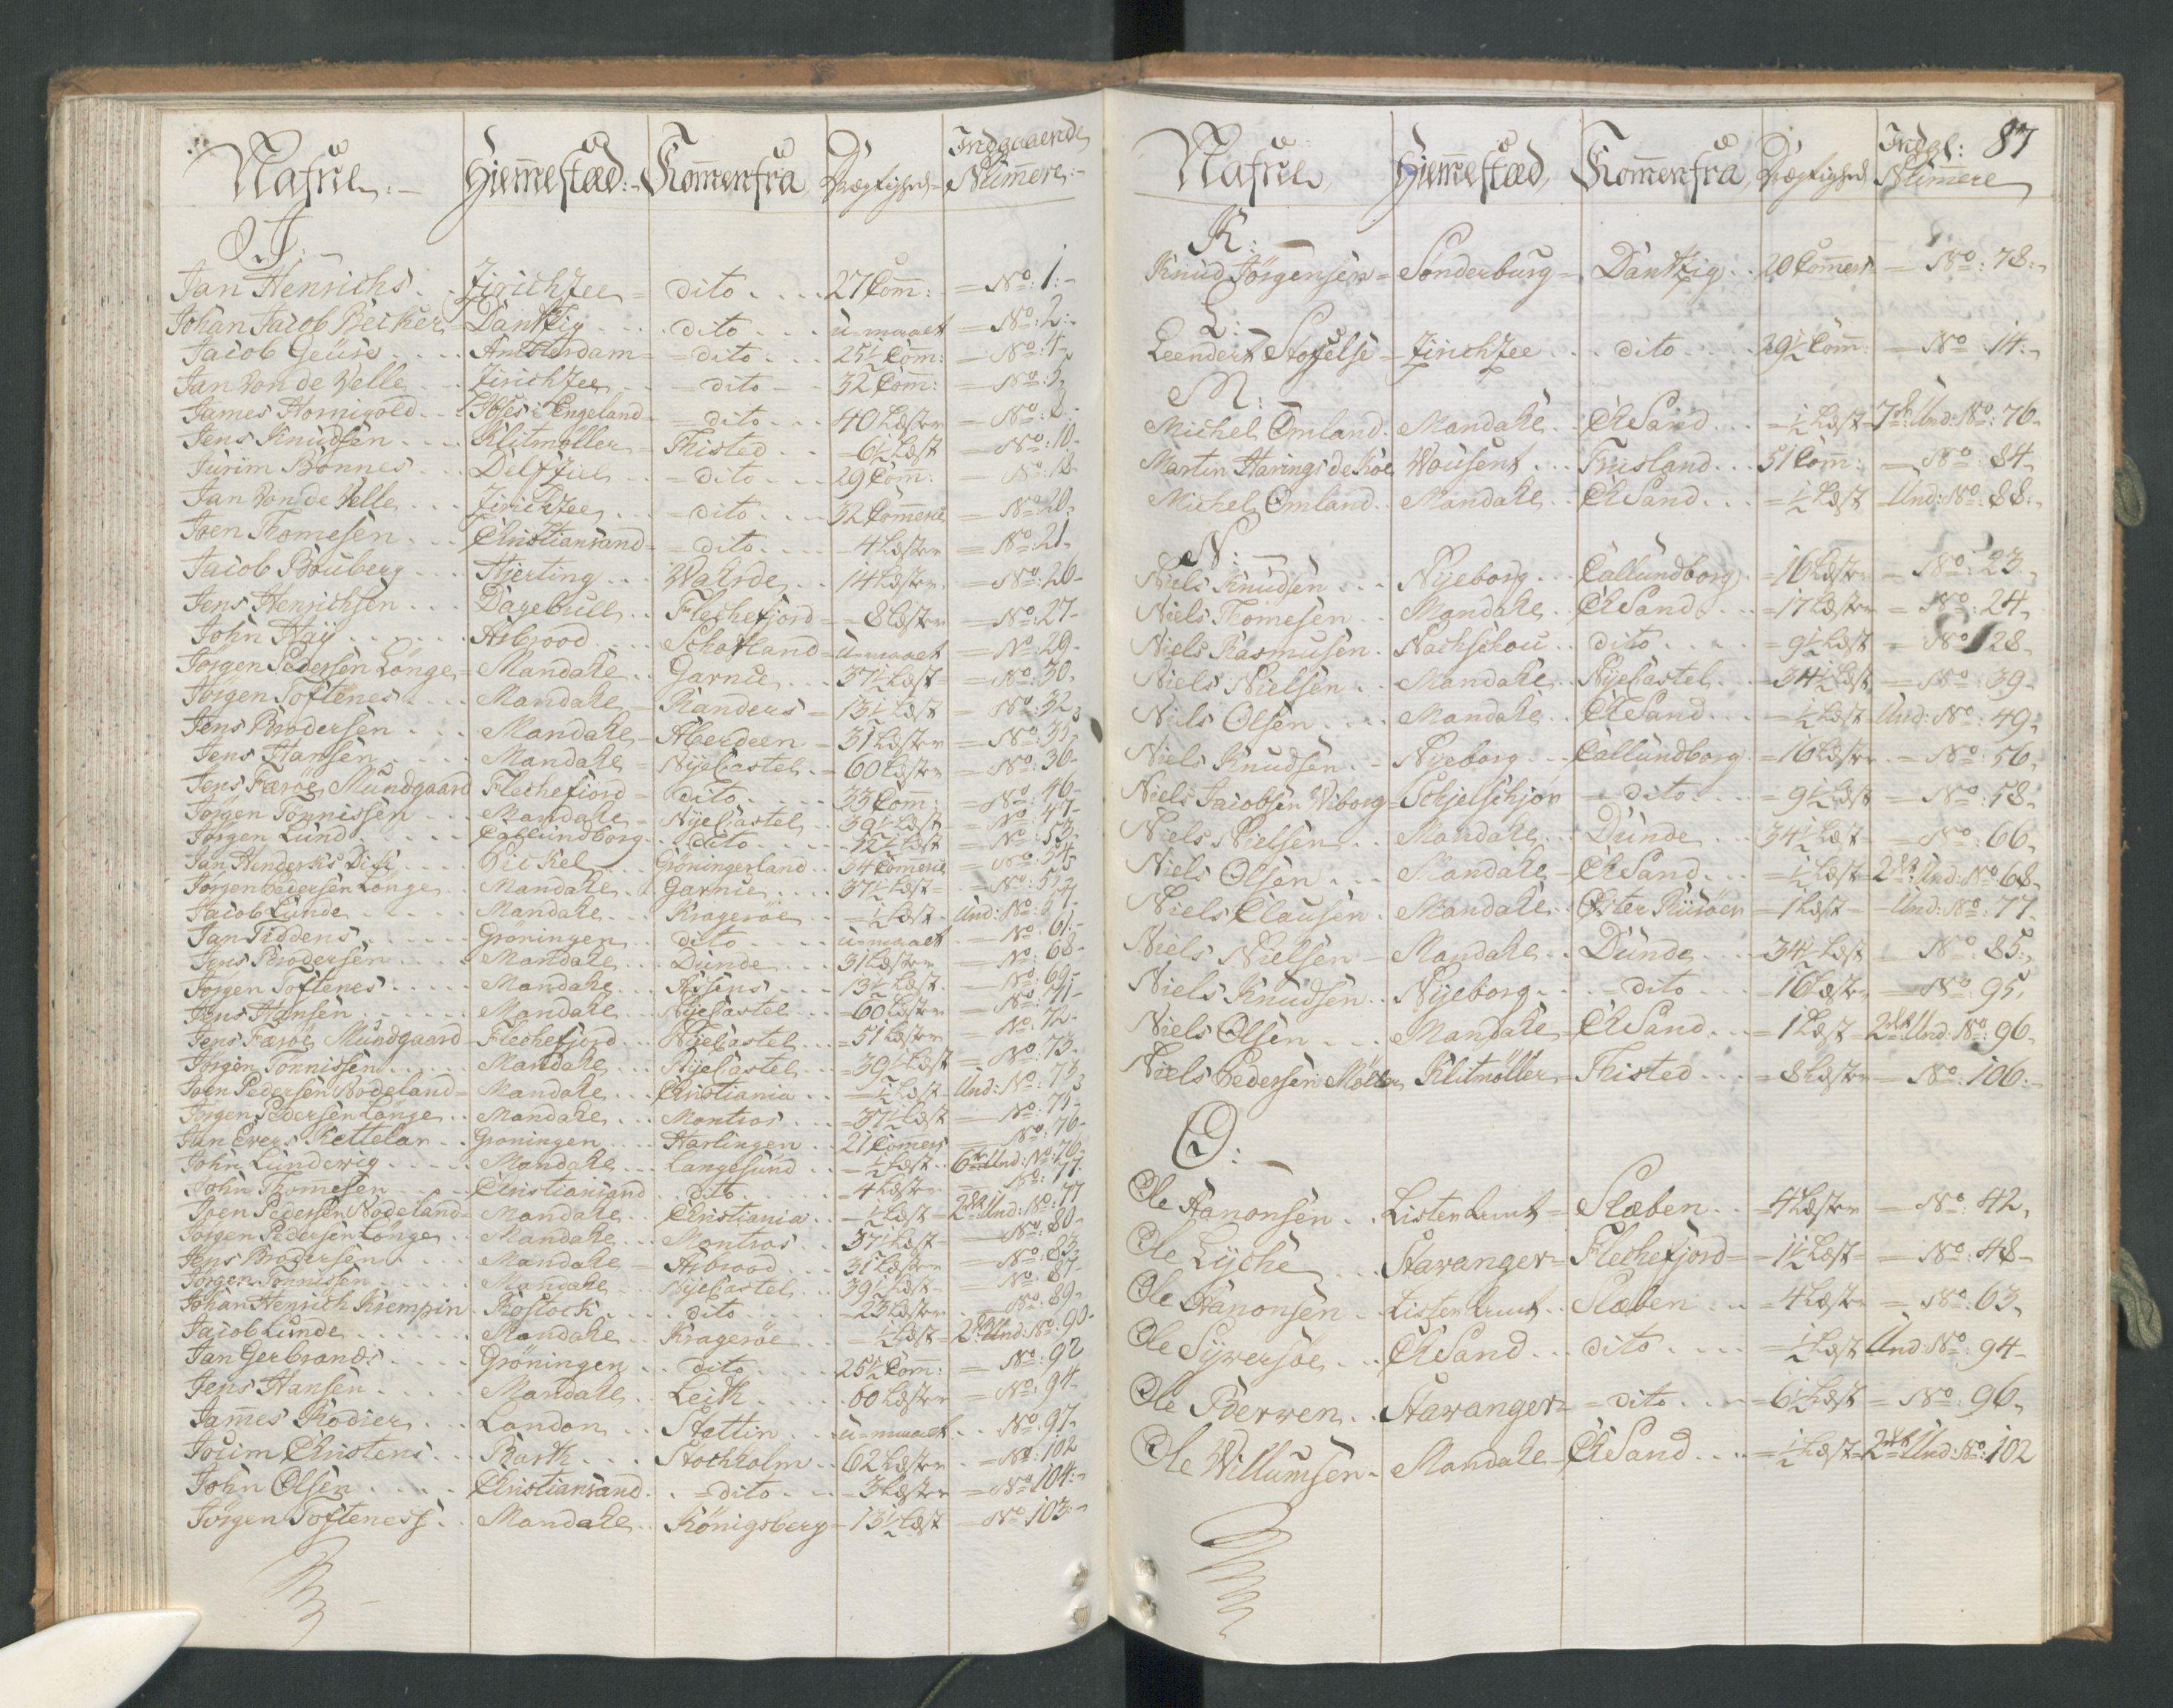 Nafne Hiemestæd Kommenfra Drægtighed Indgaaende Numere
J:
Jan Henrichs Zirichzee dito 27 Com: No: 1
Johan Jacob Becker Dantzig dito u-maalt No: 2
Jacob Geüse Amsterdam dito 25½ Com: No: 4
Jan von de Velle Zirichzee dito 32 Com: No: 5
James Hornigold i Engeland dito 40 Læster No:
Jens Knudsen Klitmøller Thisted 6½ Læst No: 10
Jurim Bonnes Delfziel dito 29 Com: No: 18
Jan von de Velle Zirichzee dito 32 Comerce No: 20
Joen Thomesen Christiansand dito 4 Læster No: 21
Jacob Bouberg Hierting Wahrde 14 Læster No: 26
Jens Henrichsen Dagebüll Flechefjord 8 Læster No: 27
John Haÿ Asbrood Schottland u-maalt No: 29
Jørgen Pedersen Longe Mandahl Garnie 37½ Læst No: 30
Jørgen Toftenes Mandahl Randers 13½ Læst No: 32
Jens Brodersen Mandahl Aberdeen 31 Læster No: 33
Jens Hansen Mandahl Nÿe Castel 60 Læster No: 36
Jens Færøe Mundgaard Flechefiord dito 33 Com: No: 46
Jørgen Tønnissen Mandahl Nÿe Castel 39½ Læst No: 47
Jørgen Lund Callundborg dito 12½ Læst No: 53
Jan Henderks Dick Pickel Gröningerland 34 Comerce No: 54
Jørgen Pedersen Longe Mandahl Garnie 37½ Læst No: 55
Jacob Lunde Mandahl Kragerøe ½ Læst Und: No: 57
Jan Tiddens Gröningen dito u-maalt No: 61
Jens Brodersen Mandahl Dunde 31 Læster No: 68
Jørgen Toftenes Mandahl Assens 13½ Læst No: 69
Jens Hansen Mandahl Nÿe Castel 60 Læster No: 71
Jens Færøe Mundgaard Flechefjord Nÿe Castel 51 Læster No: 72
Jørgen Tønnissen Mandahl Nÿe Castel 39½ Læst No: 73
Joen Pedersen Nodeland Mandahl Christiania ½ Læst Und: No: 73
Jørgen Pedersen Longe Mandahl Montros 37½ Læst No: 75
Jan Evers Kettelar Groningen Harlingen 21 Comers No: 76
John Lundewig Mandahl Langesund ½ Læst 6te Und: No: 76
John Thomesen Christiansand dito 4 Læster No: 77
Joen Pedersen Nodeland Mandahl Christiania ½ Læst 2det Und: No: 77
Jørgen Pedersen Longe Mandahl Montros 37½ Læst No: 80
Jens Brodersen Mandahl Asbrood 31 Læster No: 83
Jørgen Tonnissen Mandahl Nÿe Castel 39½ Læst No: 87
Johan Henrich Krempin Rostoch dito 23 Læster No: 89
Jacob Lunde Mandahl Kragerøe ½ Læst 2det Und: No: 90
Jan Gerbrands Gröningen dito 25½ Com: No: 92
Jens Hansen Mandahl Leith 60 Læster No: 94
James Rodier London Stettin u-maalt No: 97
Jocim Christens Barth Stochholm 62 Læster No: 102
John Olsen Christiansand dito 3 Læster No: 104
Jørgen Toftenes Mandahl Königsberg 13½ Læst No: 103
87
Nafne Hiemestæd Kommenfra Drægtighed Indg: Numere
K:
Knud Jörgensen Sonderburg Dantzig 20 Comers No: 78
L:
Leendert Stoffelse Zirichzee dito 29½ Com: No: 14
M:
Michel Omland Mandahl Ch Sand ½ Læst 7de Und: No: 76
Martin Harings de Koe Wousent Frisland 31 Com: No: 84
Michel Omland Mandahl Ch Sand ½ Læst Und: No: 88
N:
Niels Knudsen Nÿeborg Callundborg 16 Læster No: 23
Niels Thomesen Mandahl Ch Sand 17 Læster No: 24
Niels Rasmusen Nachschou dito 9½ Læst No: 28
Niels Nielsen Mandahl Nÿe Castel 34½ Læst No: 39
Niels Olsen Mandahl Ch Sand ½ Læst Und: No: 49
Niels Knudsen Nÿeborg Callundborg 16 Læster No: 56
Niels Jacobsen Wiborg Schjelschjør dito 9½ Læst No: 58
Niels Nielsen Mandahl Dunde 34½ Læst No: 66
Niels Olsen Mandahl Ch Sand ½ Læst 2det Und: No: 68
Niels Clausen Mandahl Öster Riisöer 1 Læst Und: No: 77
Niels Nielsen Mandahl Dunde 34½ Læst No: 85
Niels Knudsen Nÿeborg dito 16 Læster No: 95
Niels Olsen Mandahl Ch Sand 1 Læst 2det Und: No: 96
Niels Pedersen Möller Klitmöller Thisted 8 Læster No: 106
O:
Ole Aanonsen Listerlandt Slæben 4 Læster No: 42
Ole Lÿche Stawanger Flechefjord 1½ Læst No: 48
Ole Aanonsen Listerlandt Slæben 4 Læster No: 63
Ole Sÿwersöe Ch Sand dito ½ Læst Und: No: 94
Ole Berwen Stawanger dito 6½ Læst No: 96
Ole Willumsen Mandahl Ch Sand ½ Læst 2det Und: No: 102